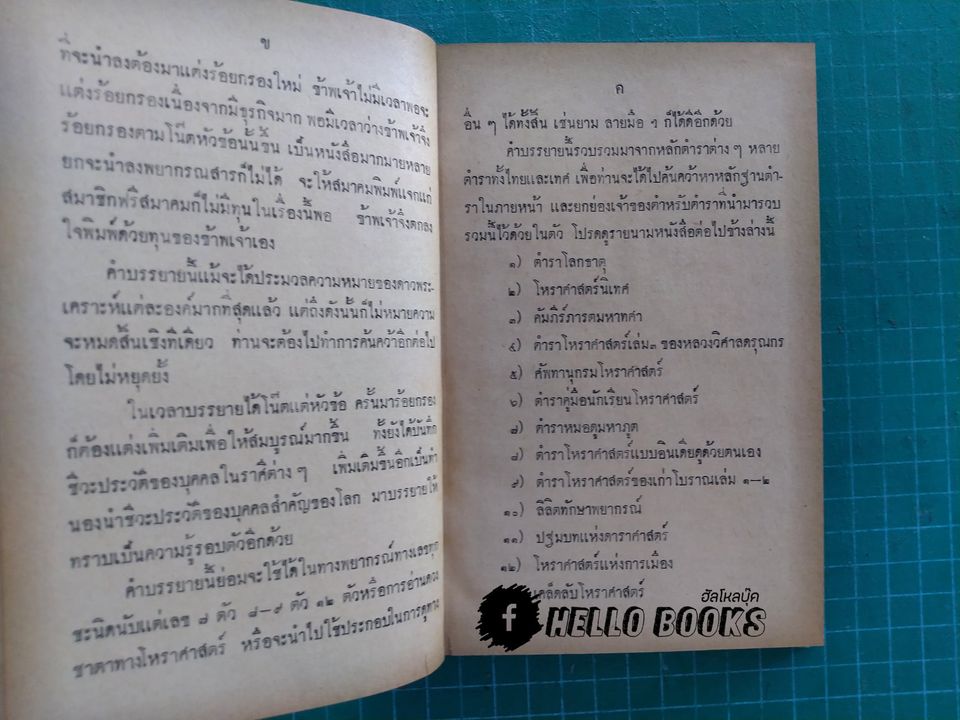 ข
ที่จะนำลงต้องมาแต่งร้อยกรองใหม่ ข้าพเจ้าไม่มีเวลาพอจะ
แต่งร้อยกรองเนื่องจากมีธุรกิจมาก พอมีเวลาว่างข้าพเจ้าจึง
ร้อยกรองตามโน๊ตหัวข้อนั้นขึ้น เป็นหนังสือมากมายหลาย
ยกจะนำลงพยากรณสารก็ไม่ได้ จะให้สมาคมพิมพ์แจกแก่
สมาชิกฟรีสมาคมก็ไม่มีทุนในเรื่องนี้พอ ข้าพเจ้าจึงตกลง
ใจพิมพ์ด้วยทุนของข้าพเจ้าเอง
คำบรรยายนี้แม้จะได้ประมวลความหมายของดาวพระ-
เคราะห์แต่ละองค์มากที่สุดแล้ว แต่ถึงดังนั้นก็ไม่หมายความ
จะหมดสิ้นเชิงทีเดียว ท่านจะต้องไปทำการค้นคว้าอีกต่อไป
โดยไม่หยุดยั้ง
ในเวลาบรรยายได้โน๊ตแต่หัวข้อ ครั้นมาร้อยกรอง
ก็ต้องแต่งเพิ่มเติมเพื่อให้สมบูรณ์มากขึ้น ทั้งยังได้บันทึก
ชีวะประวัติของบุคคลในราศีต่าง ๆ เพิ่มเติมขึ้นอีกเป็นทำ
นองนำชีวะประวัติของบุคคลสำคัญของโลก มาบรรยายให้
ทราบเป็นความรู้รอบตัวอีกด้วย
คำบรรยายนี้ย่อมจะใช้ได้ในทางพยากรณ์ทางเลขทุก
ชะนิดนับแต่เลข ๗ ตัว ๘-๙ ตัว ๑๒ ตัวหรือการอ่านดวง
ชาตาทางโหราศาสตร์ หรือจะนำไปใช้ประกอบในการดูทาง
ค
อื่น ๆ ได้ทั้งสิ้น เช่นยาม ลายมือ ฯ ก็ได้ดีอีกด้วย
คำบรรยายนี้รวบรวมมาจากหลักตำราต่าง ๆ หลาย
ตำราทั้งไทยและเทศ เพื่อท่านจะได้ไปค้นคว้าหาหลักฐานตำ-
ราในภายหน้า และยกย่องเจ้าของตำหรับตำราที่นำมารวบ
รวมนี้ไว้ด้วยในตัว โปรดดูรายนามหนังสือต่อไปข้างล่างนี้
๑) ตำราโลกธาตุ
๒) โหราศาสตร์นิเทศ
๓) คัมภีร์ภารตมหาทศา
๔) ตำราโหราศาสตร์เล่ม๓ ของหลวงวิศาลดรุณกร
๕) ศัพทานุกรมโหราศาสตร์
๖) ตำราคู่มือนักเรียนโหราศาสตร์
๗) ตำราหมอดูมหาภูต
๘) ตำราโหราศาสตร์แบบอินเดียดูด้วยตนเอง
๙) ตำราโหราศาสตร์ของเก่าโบราณเล่ม ๑-๒
๑๐) ลิลิตทักษาพยากรณ์
๑๑) ปฐมบทแห่งดาราศาสตร์
๑๒) โหราศาสตร์แห่งการเมือง
เคล็ดลับโหราศาสตร์
ฮัลโหลบุ๊ค
f HELLO BOOKS